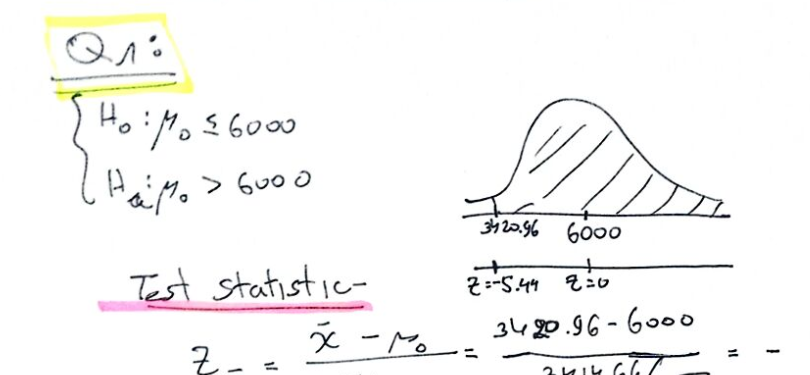 Q1:
H₀ : μ₀ ≤ 6000
Hₐ : μ₀ > 6000
3420.96 6000
Z=-5.44 Z=0
Test statistic-
Z = x̄ - μ₀ = 3420.96 - 6000 = -